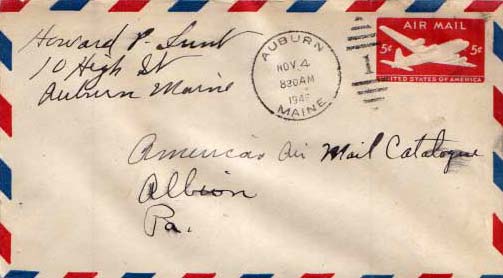 Howard P. Lunt
10 High St
Auburn Maine
AUBURN
NOV. 4
830 AM
MAINE
1
AIR MAIL
5¢ 5¢
UNITED STATES OF AMERICA
American Air Mail Catalogue
Albion
Pa.